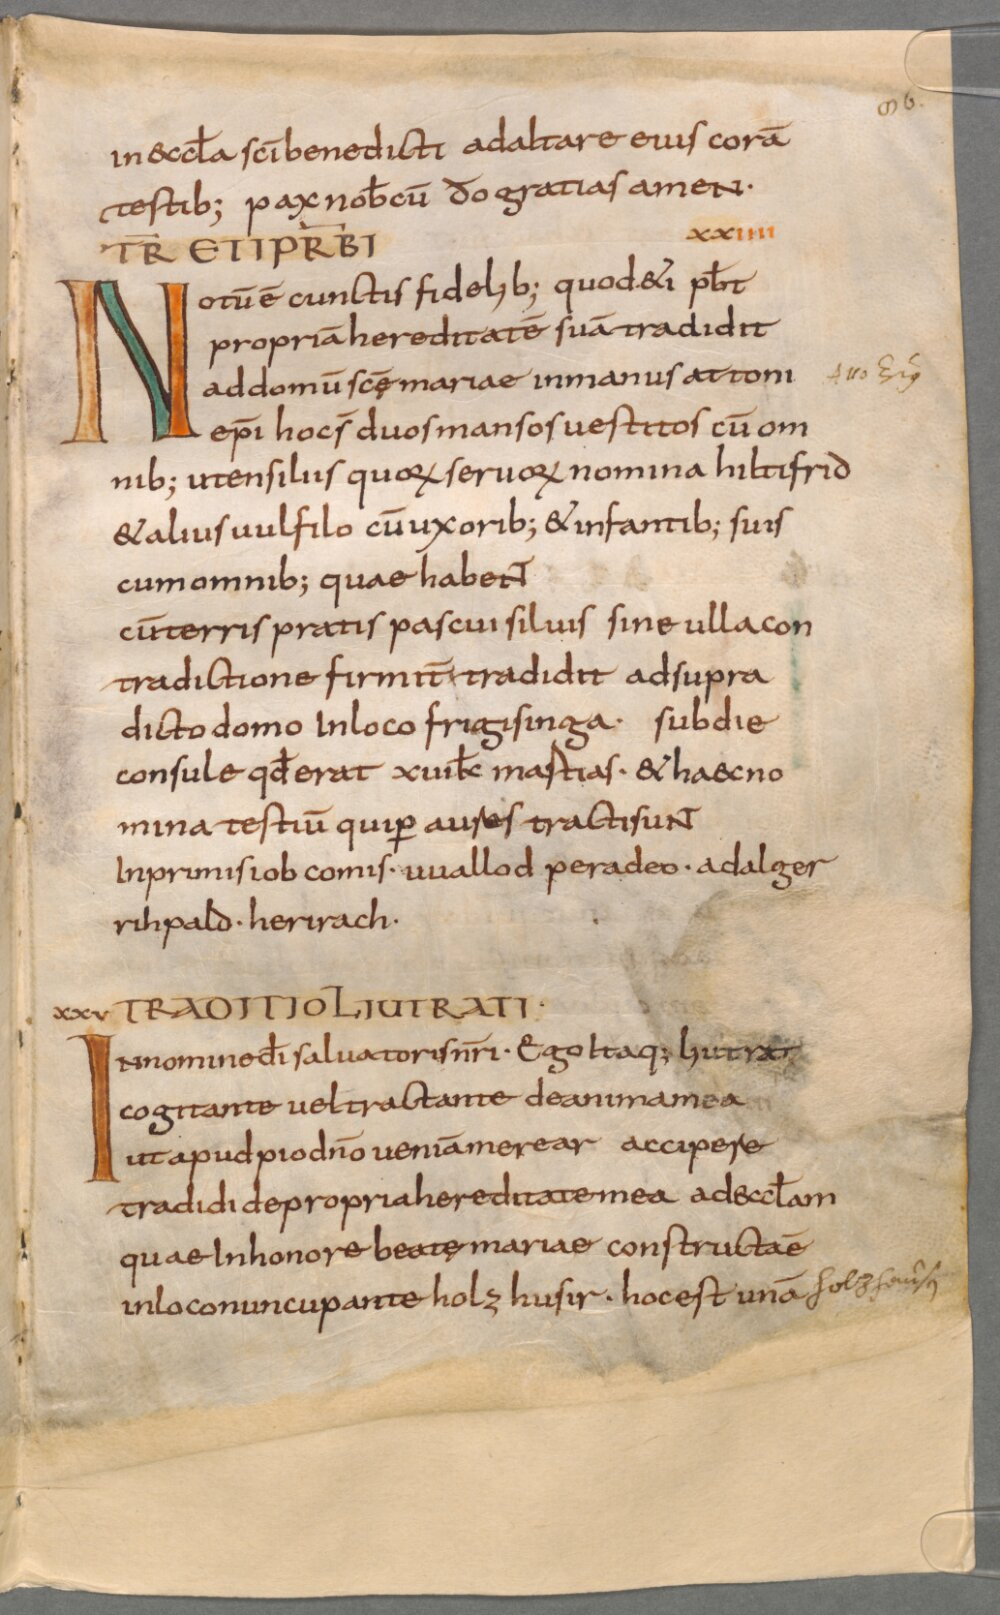 in &ccl̄a sc̄i benedicti ad altare eius corā
testib; pax nob̄ cū d̄o gratias amen·
TR̄ ETI PR̄BI
xxiiii
Notū ē cunctis fidelib; quod &i pb̄t
propriā hereditatē suā tradidit
ad domū scę̄ mariae in manus attoni
ep̄i hoc ē duos mansos uestitos cū om
nib; utensilius quoꝝ seruoꝝ nomina hiltifrid
& alius uulfilo cū uxorib; & infantib; suis
cum omnib; quae habent
cū terris pratis pascui siluis sine ulla con
tradictione firmit̄ tradidit ad supra
dicto domo In loco frigisinga· sub die
consule qđ erat xuii kł mastias· & haec no
mina testiū qui ꝑ aures tracti sunt
Inprimis iob comis· uuallod peradeo· adalger
rihpald· herirach·
xxv TRADITIO LIUTRATI·
In nomine dī saluatoris nr̄i· Ego Itaq; liutrat
cogitante uel tractante de anima mea
ut apud pio dn̄o ueniā merear accipere
tradidi de propria hereditate mea ad &ccl̄am
quae In honore beatę mariae constructaē
in loco nuncupante holz husir· hoc est unā